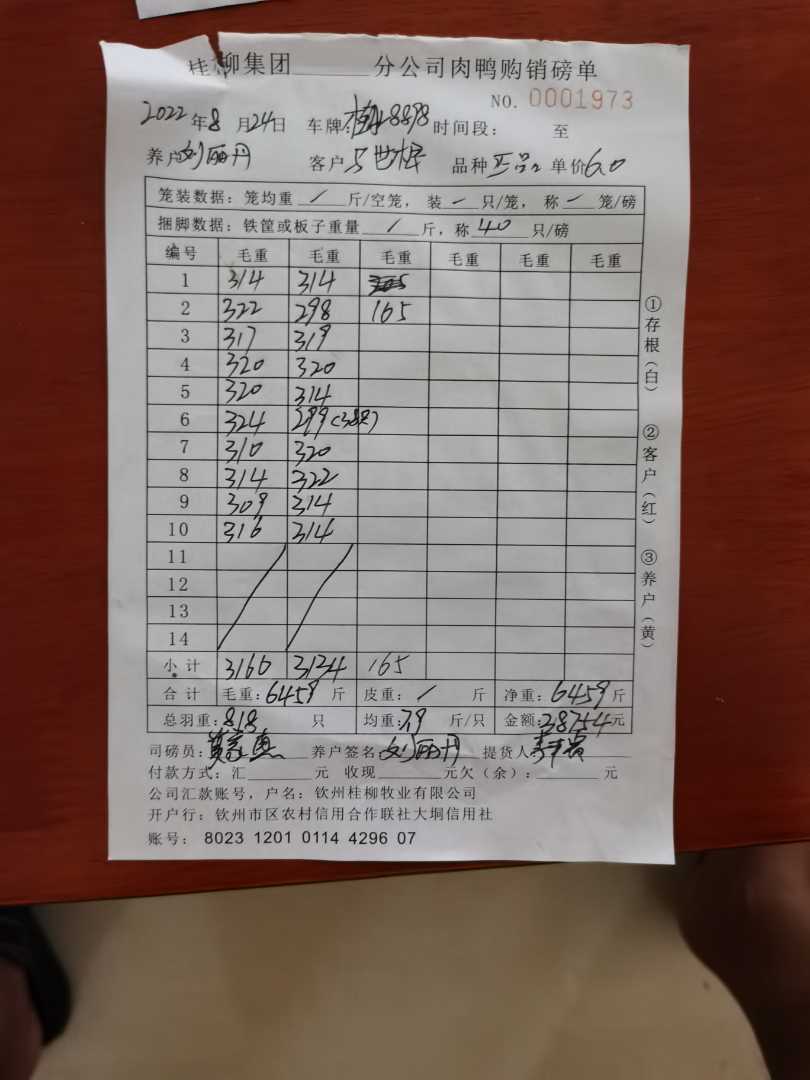 桂柳集团______分公司肉鸭购销磅单
NO. 0001973
2022年8月24日 车牌:桂 8898 时间段: 至
养户刘丽丹 客户 世 品种 正品 单价6.0
笼装数据:笼均重 / 斤/空笼,装 一 只/笼,称 一 笼/磅
捆脚数据:铁筐或板子重量 / 斤,称 40 只/磅
编号 毛重 毛重 毛重 毛重 毛重 毛重
1 314 314
2 322 298 165
3 317 319
4 320 320
5 320 314
6 324 299(38只)
7 310 320
8 314 322
9 309 314
10 316 314
11
12
13
14
小计 3166 3134 165
合计 毛重:6459 斤 皮重: / 斤 净重:6459 斤
总羽重:818 只 均重:7.9 斤/只 金额:38754元
司磅员: 养户签名 刘丽丹 提货人
付款方式:汇______元 收现______元欠(余):______元
公司汇款账号,户名:钦州桂柳牧业有限公司
开户行:钦州市区农村信用合作联社大垌信用社
账号: 8023 1201 0114 4296 07
①存根(白)
②客户(红)
③养户(黄)